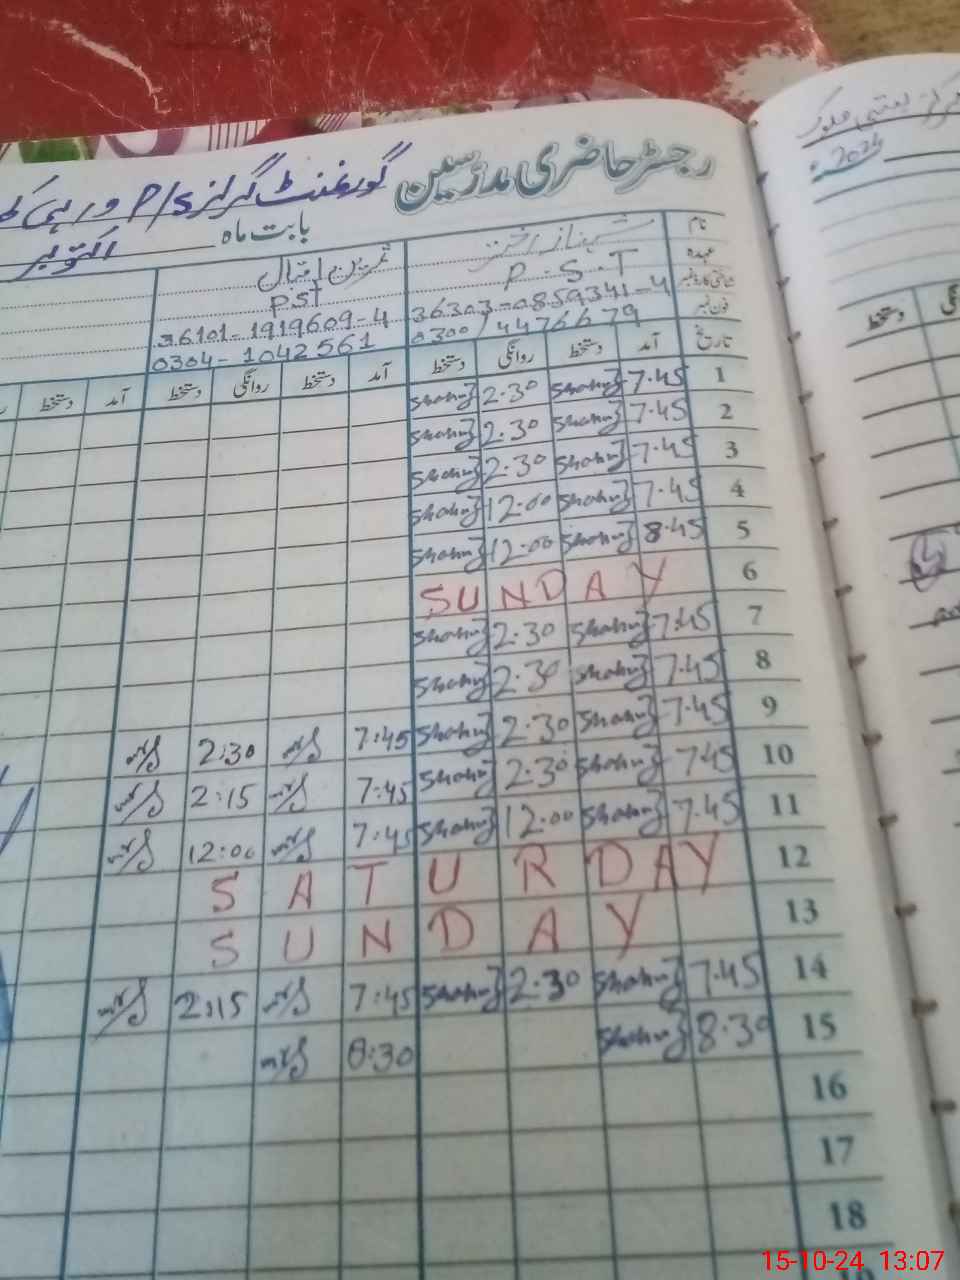 رجسٹر حاضری مدرسین گورنمنٹ گرلز P/S
بابت ماہ اکتوبر
2024
نام شہناز اختر ثمرین اقبال
عہدہ P.S.T PST
36303-0859341-4 36101-1919609-4
فون نمبر 0300/4476679 0304-1042561
تاریخ آمد دستخط روانگی دستخط آمد دستخط روانگی دستخط آمد دستخط
1 7.45 Shahnaz 2.30 Shahnaz
2 7.45 Shahnaz 2.30 Shahnaz
3 7.45 Shahnaz 2.30 Shahnaz
4 7.45 Shahnaz 12.00 Shahnaz
5 8.45 Shahnaz 12.00 Shahnaz
6 SUNDAY
7 7.45 Shahnaz 2.30 Shahnaz
8 7.45 Shahnaz 2.30 Shahnaz
9 7.45 Shahnaz 2.30 Shahnaz 7:45 2:30
10 7.45 Shahnaz 2.30 Shahnaz 7:45 2:15
11 7.45 Shahnaz 12.00 Shahnaz 7:45 12:00
12 SATURDAY
13 SUNDAY
14 7.45 Shahnaz 2.30 Shahnaz 7:45 2:15
15 8.30 Shahnaz 8:30
16
17
18
دستخط
15-10-24 13:07